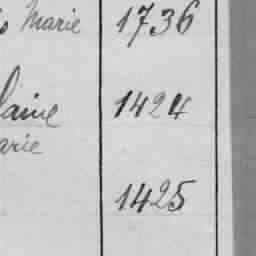 Marie 1736
laine 1424
arie
1425